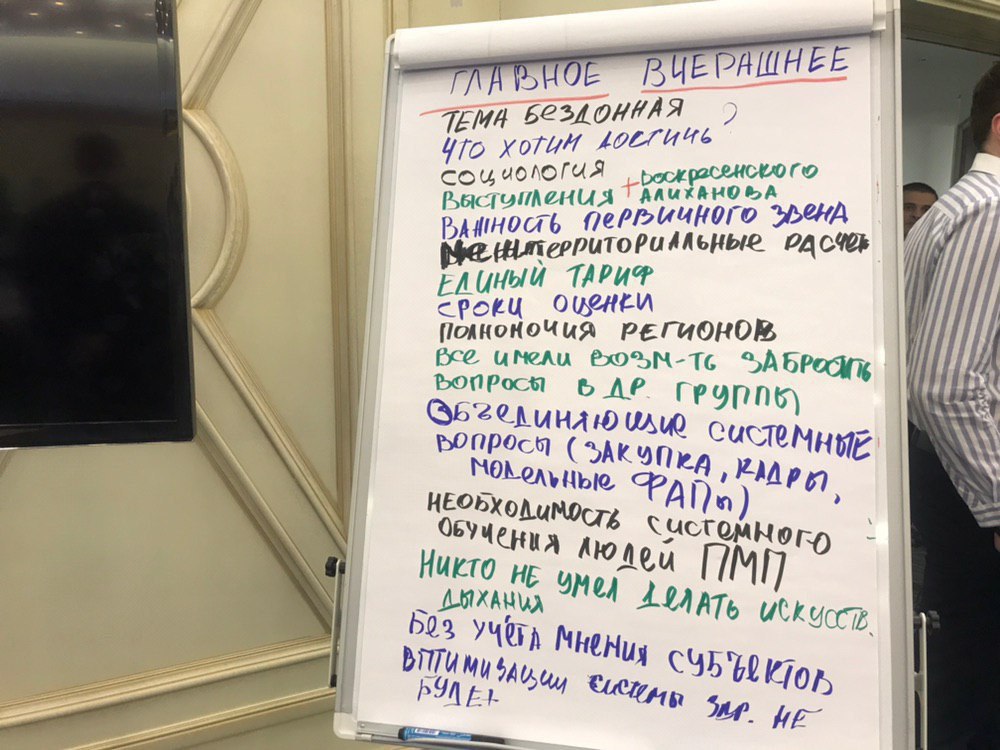 ГЛАВНОЕ ВЧЕРАШНЕЕ
ТЕМА БЕЗДОННАЯ
ЧТО ХОТИМ ДОСТИЧЬ?
СОЦИОЛОГИЯ
ВЫСТУПЛЕНИЯ + ВОСКРЕСЕНСКОГО
АЛИХАНОВА
ВАЖНОСТЬ ПЕРВИЧНОГО ЗВЕНА
МЕЖТЕРРИТОРИАЛЬНЫЕ РАСЧЕТ
ЕДИНЫЙ ТАРИФ
СРОКИ ОЦЕНКИ
ПОЛНОМОЧИЯ РЕГИОНОВ
ВСЕ ИМЕЛИ ВОЗМ-ТЬ ЗАБРОСИТЬ
ВОПРОСЫ В ДР. ГРУППЫ
ОБЪЕДИНЯЮЩИЕ СИСТЕМНЫЕ
ВОПРОСЫ (ЗАКУПКА, КАДРЫ,
МОДЕЛЬНЫЕ ФАПЫ)
НЕОБХОДИМОСТЬ СИСТЕМНОГО
ОБУЧЕНИЯ ЛЮДЕЙ ПМП
НИКТО НЕ УМЕЛ ДЕЛАТЬ ИСКУССТВ.
ДЫХАНИЯ
БЕЗ УЧЁТА МНЕНИЯ СУБЪЕКТОВ
ВПТИМИЗАЦИИ СИСТЕМЫ ЗДР. НЕ
БУДЕТ